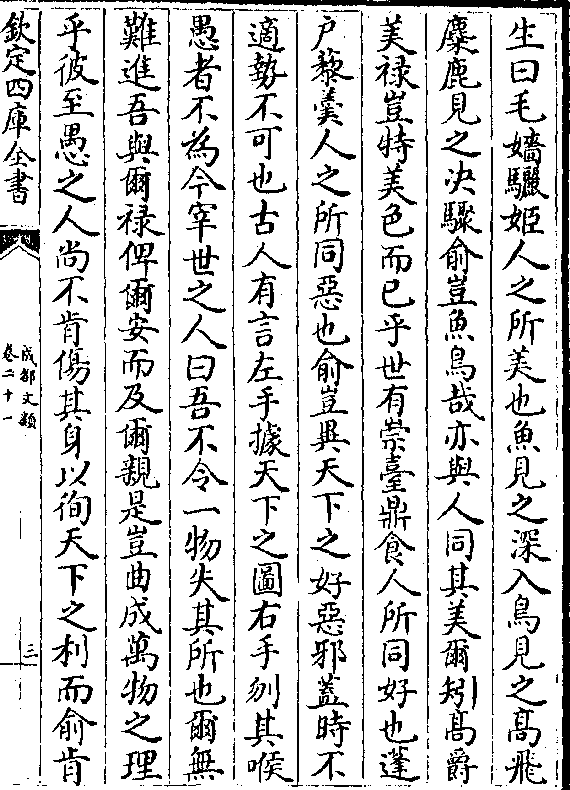 生曰毛嬙驪姬人之所美也魚見之深入鳥見之髙飛
麋鹿見之决驟俞豈魚鳥哉亦與人同其美爾矧髙爵
美禄豈特美色而已乎世有崇臺鼎食人所同好也蓬
户藜羮人之所同惡也俞豈異天下之好惡邪蓋時不
適勢不可也古人有言左手據天下之圖右手刎其喉
愚者不為今宰世之人曰吾不令一物失其所也爾無
難進吾與爾禄俾爾安而及爾親是豈曲成萬物之理
乎彼至愚之人尚不肯傷其身以徇天下之利而俞肯
欽定四庫全書
成都文類
卷二十一
三